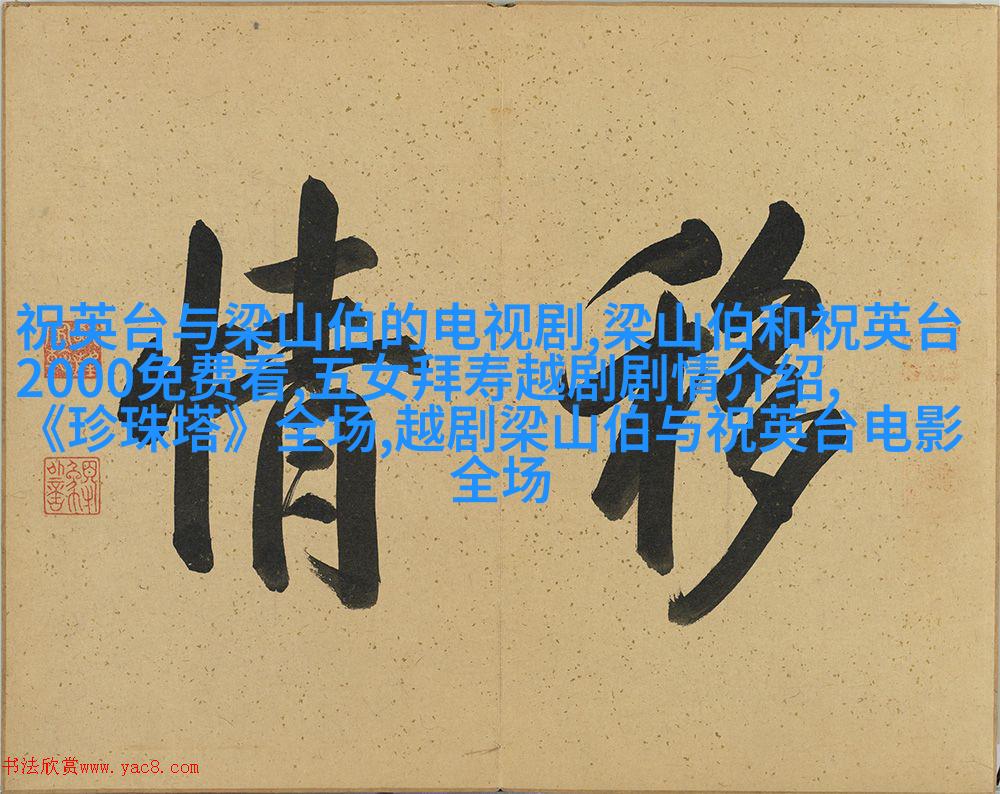 移情
祝英台与梁山伯的电视剧,梁山伯和祝英台
2000免费看,五女拜寿越剧剧情介绍,
《珍珠塔》全场,越剧梁山伯与祝英台电影
全场
书法欣赏www.yac8.com